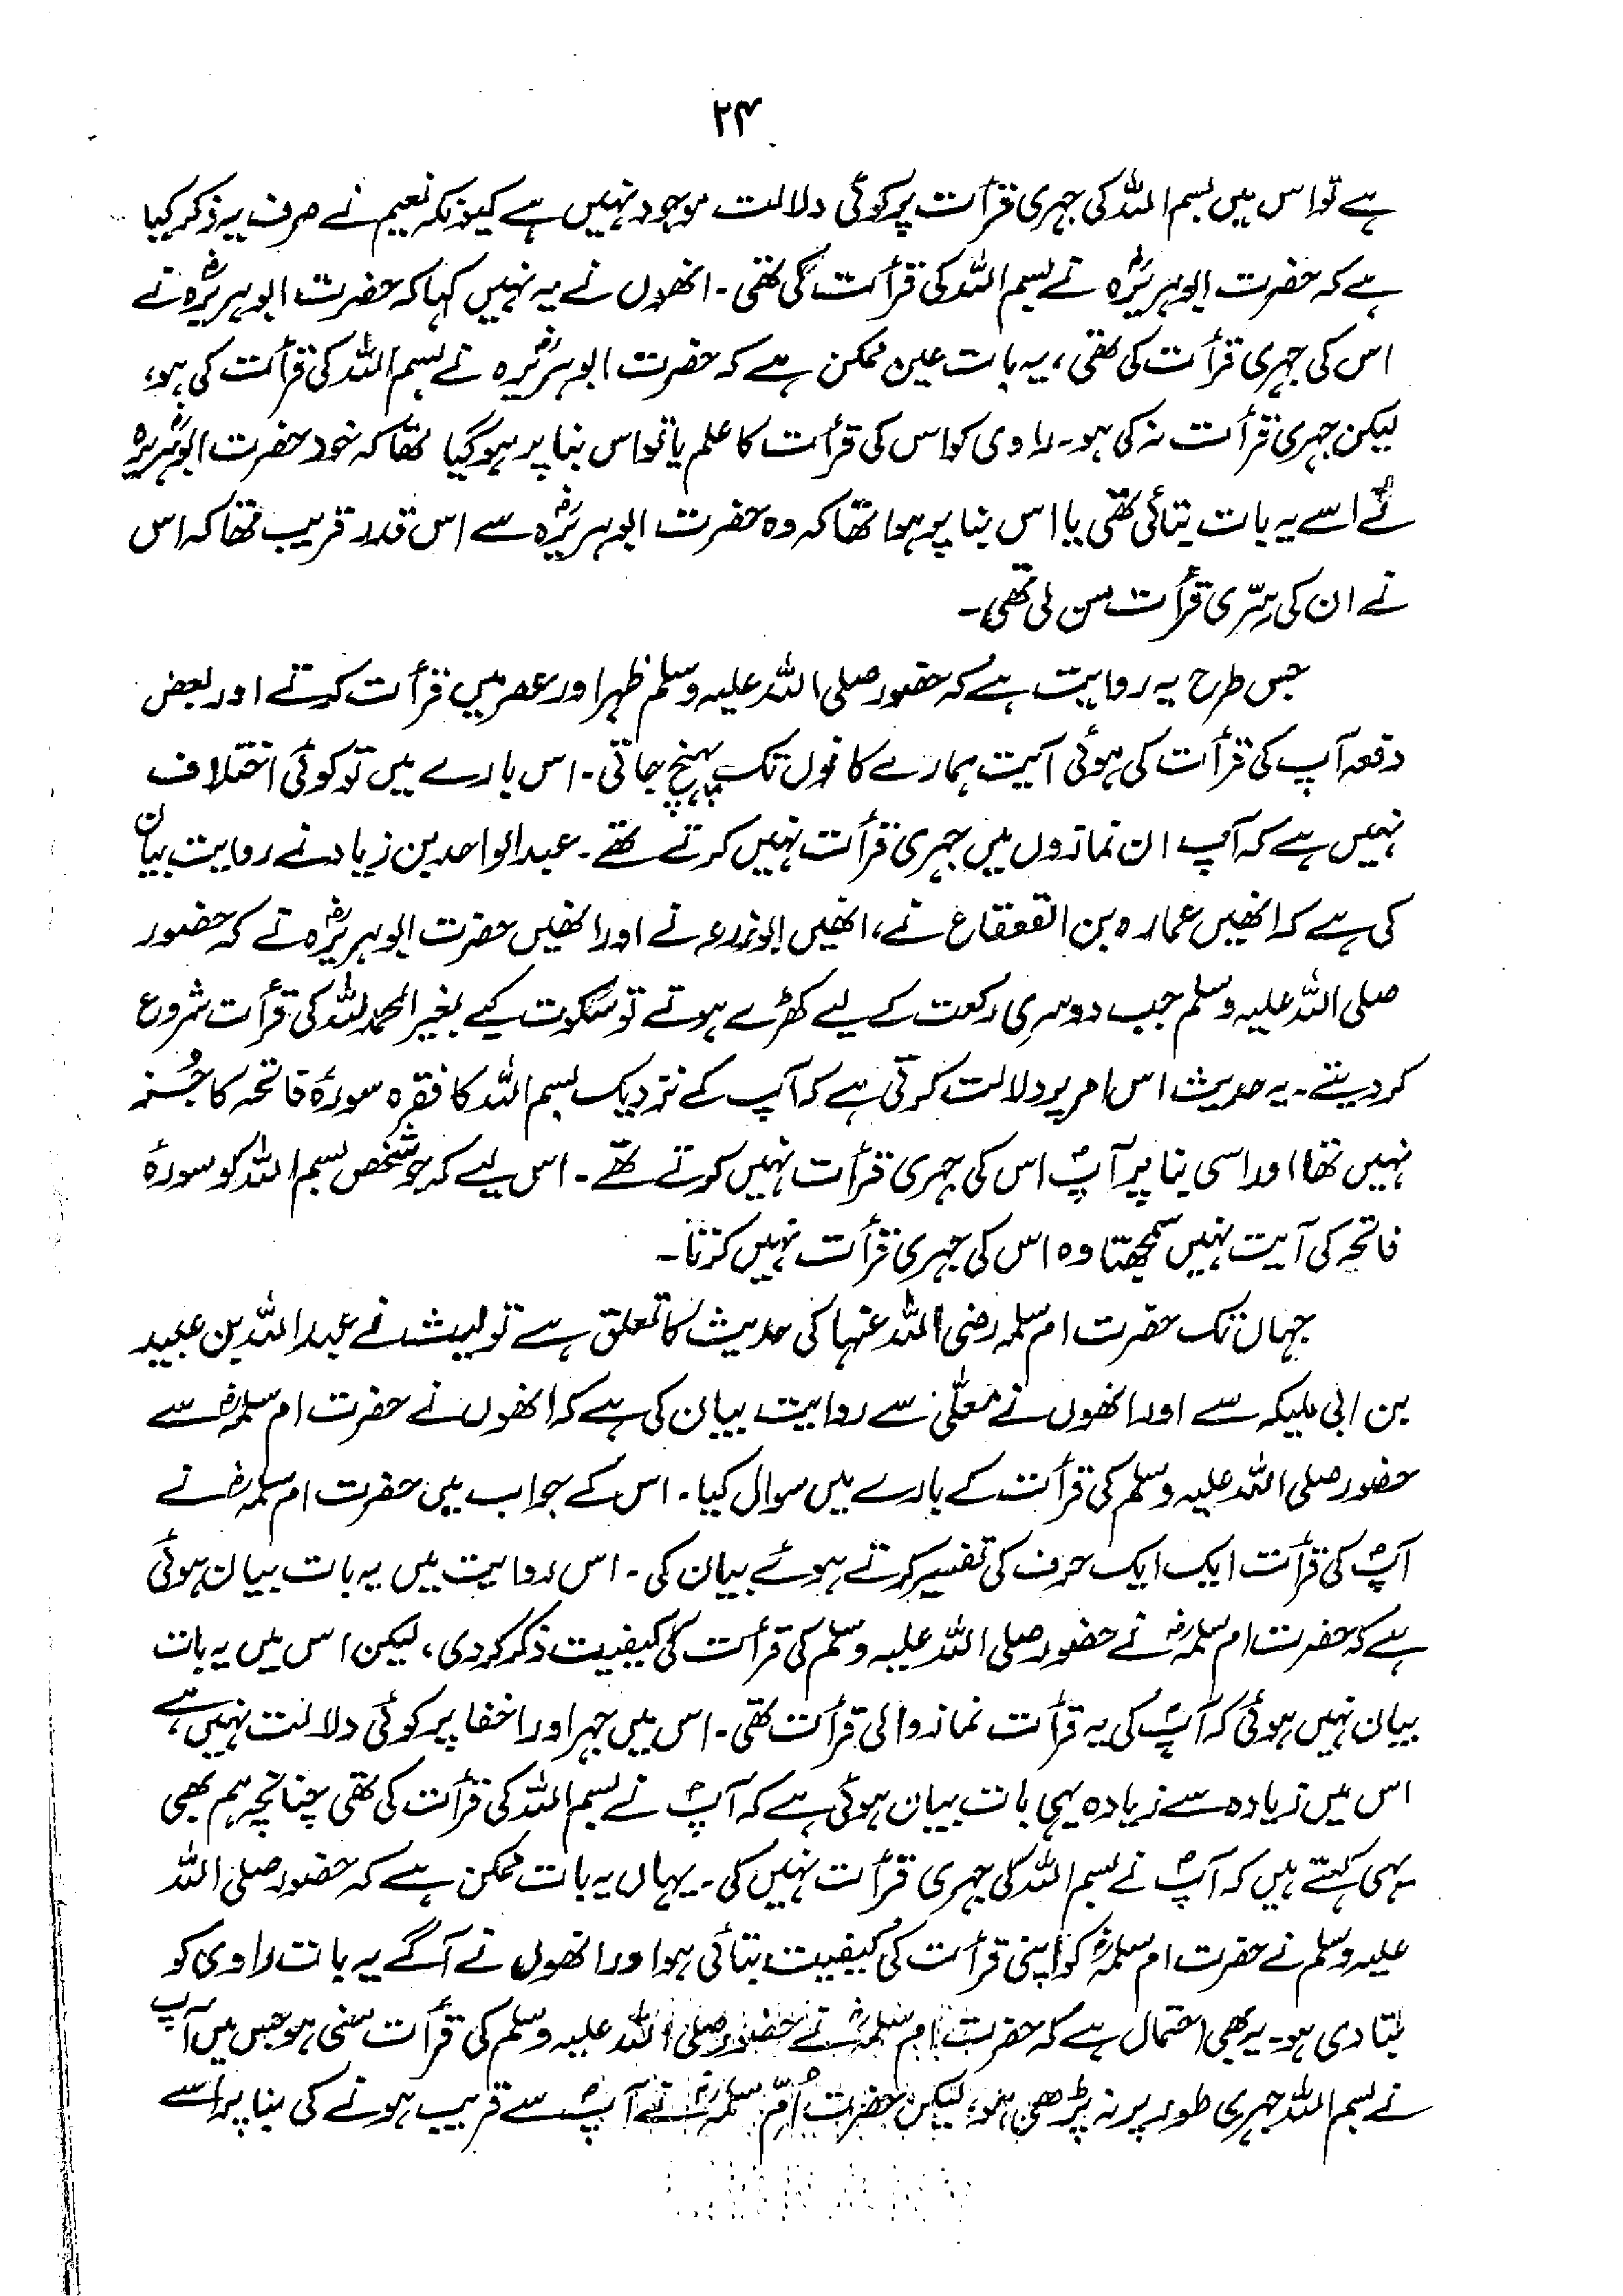 ۲۴
ہے تو اس میں بسم اللہ کی جہری قرأت پر کوئی دلالت موجود نہیں ہے کیونکہ نعیم نے صرف یہ ذکر کیا
ہے کہ حضرت ابو ہریرہؓ نے بسم اللہ کی قرأت کی تھی۔ انھوں نے یہ نہیں کہا کہ حضرت ابو ہریرہؓ نے
اس کی جہری قرأت کی تھی، یہ بات عین ممکن ہے کہ حضرت ابو ہریرہؓ نے بسم اللہ کی قرأت کی ہو،
لیکن جہری قرأت نہ کی ہو۔ راوی کو اس کی قرأت کا علم یا تو اس بنا پر ہو گیا تھا کہ خود حضرت ابو ہریرہؓ
نے اسے یہ بات بتائی تھی یا اس بنا پر ہوا تھا کہ وہ حضرت ابو ہریرہؓ سے اس قدر قریب تھا کہ اس
نے ان کی سِرّی قرأت سن لی تھی۔
جس طرح یہ روایت ہے کہ حضور صلی اللہ علیہ وسلم ظہر اور عصر میں قرأت کرتے اور بعض
دفعہ آپ کی قرأت کی ہوئی آیت ہمارے کانوں تک پہنچ جاتی۔ اس بارے میں تو کوئی اختلاف
نہیں ہے کہ آپ ان نمازوں میں جہری قرأت نہیں کرتے تھے۔ عبدالواحد بن زیاد نے روایت بیان
کی ہے کہ انھیں عمارہ بن القعقاع نے، انھیں ابوزرعہ نے اور انھیں حضرت ابو ہریرہؓ نے کہ حضور
صلی اللہ علیہ وسلم جب دوسری رکعت کے لیے کھڑے ہوتے تو سکوت کیے بغیر الحمد للہ کی قرأت شروع
کر دیتے۔ یہ حدیث اس امر پر دلالت کرتی ہے کہ آپ کے نزدیک بسم اللہ کا فقرہ سورۂ فاتحہ کا جُز
نہیں تھا اور اسی بنا پر آپؐ اس کی جہری قرأت نہیں کرتے تھے۔ اس لیے کہ جو شخص بسم اللہ کو سورۂ
فاتحہ کی آیت نہیں سمجھتا وہ اس کی جہری قرأت نہیں کرتا۔
جہاں تک حضرت ام سلمہ رضی اللہ عنہا کی حدیث کا تعلق ہے تو لیث نے عبداللہ بن عبید
بن ابی ملیکہ سے اور انھوں نے معلّیٰ سے روایت بیان کی ہے کہ انھوں نے حضرت ام سلمہؓ سے
حضور صلی اللہ علیہ وسلم کی قرأت کے بارے میں سوال کیا۔ اس کے جواب میں حضرت ام سلمہؓ نے
آپؐ کی قرأت ایک ایک حرف کی تفسیر کرتے ہوئے بیان کی۔ اس روایت میں یہ بات بیان ہوئی
ہے کہ حضرت ام سلمہؓ نے حضور صلی اللہ علیہ وسلم کی قرأت کی کیفیت ذکر کر دی، لیکن اس میں یہ بات
بیان نہیں ہوئی کہ آپؐ کی یہ قرأت نماز والی قرأت تھی۔ اس میں جہر اور اخفا پر کوئی دلالت نہیں ہے
اس میں زیادہ سے زیادہ یہی بات بیان ہوئی ہے کہ آپؐ نے بسم اللہ کی قرأت کی تھی چنانچہ ہم بھی
یہی کہتے ہیں کہ آپؐ نے بسم اللہ کی جہری قرأت نہیں کی۔ یہاں یہ بات ممکن ہے کہ حضور صلی اللہ
علیہ وسلم نے حضرت ام سلمہؓ کو اپنی قرأت کی کیفیت بتائی ہو اور انھوں نے آگے یہ بات راوی کو
بتا دی ہو۔ یہ بھی احتمال ہے کہ حضرت ام سلمہؓ نے حضور صلی اللہ علیہ وسلم کی قرأت سنی ہو جس میں آپ
نے بسم اللہ جہری طور پر نہ پڑھی ہو، لیکن حضرت اُمّ سلمہؓ نے آپؐ سے قریب ہونے کی بنا پر اسے